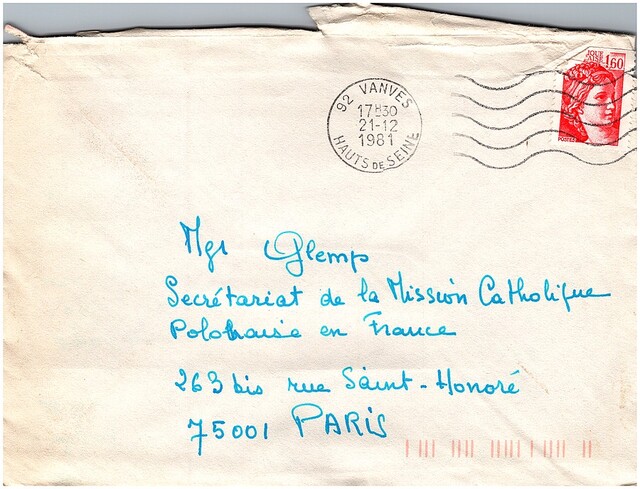 92 VANVES
17H30
21-12
1981
HAUTS DE SEINE
1,60
POSTES
Mgr Glemp
Secrétariat de la Mission Catholique
Polonaise en France
263 bis rue Saint-Honoré
75001 PARIS